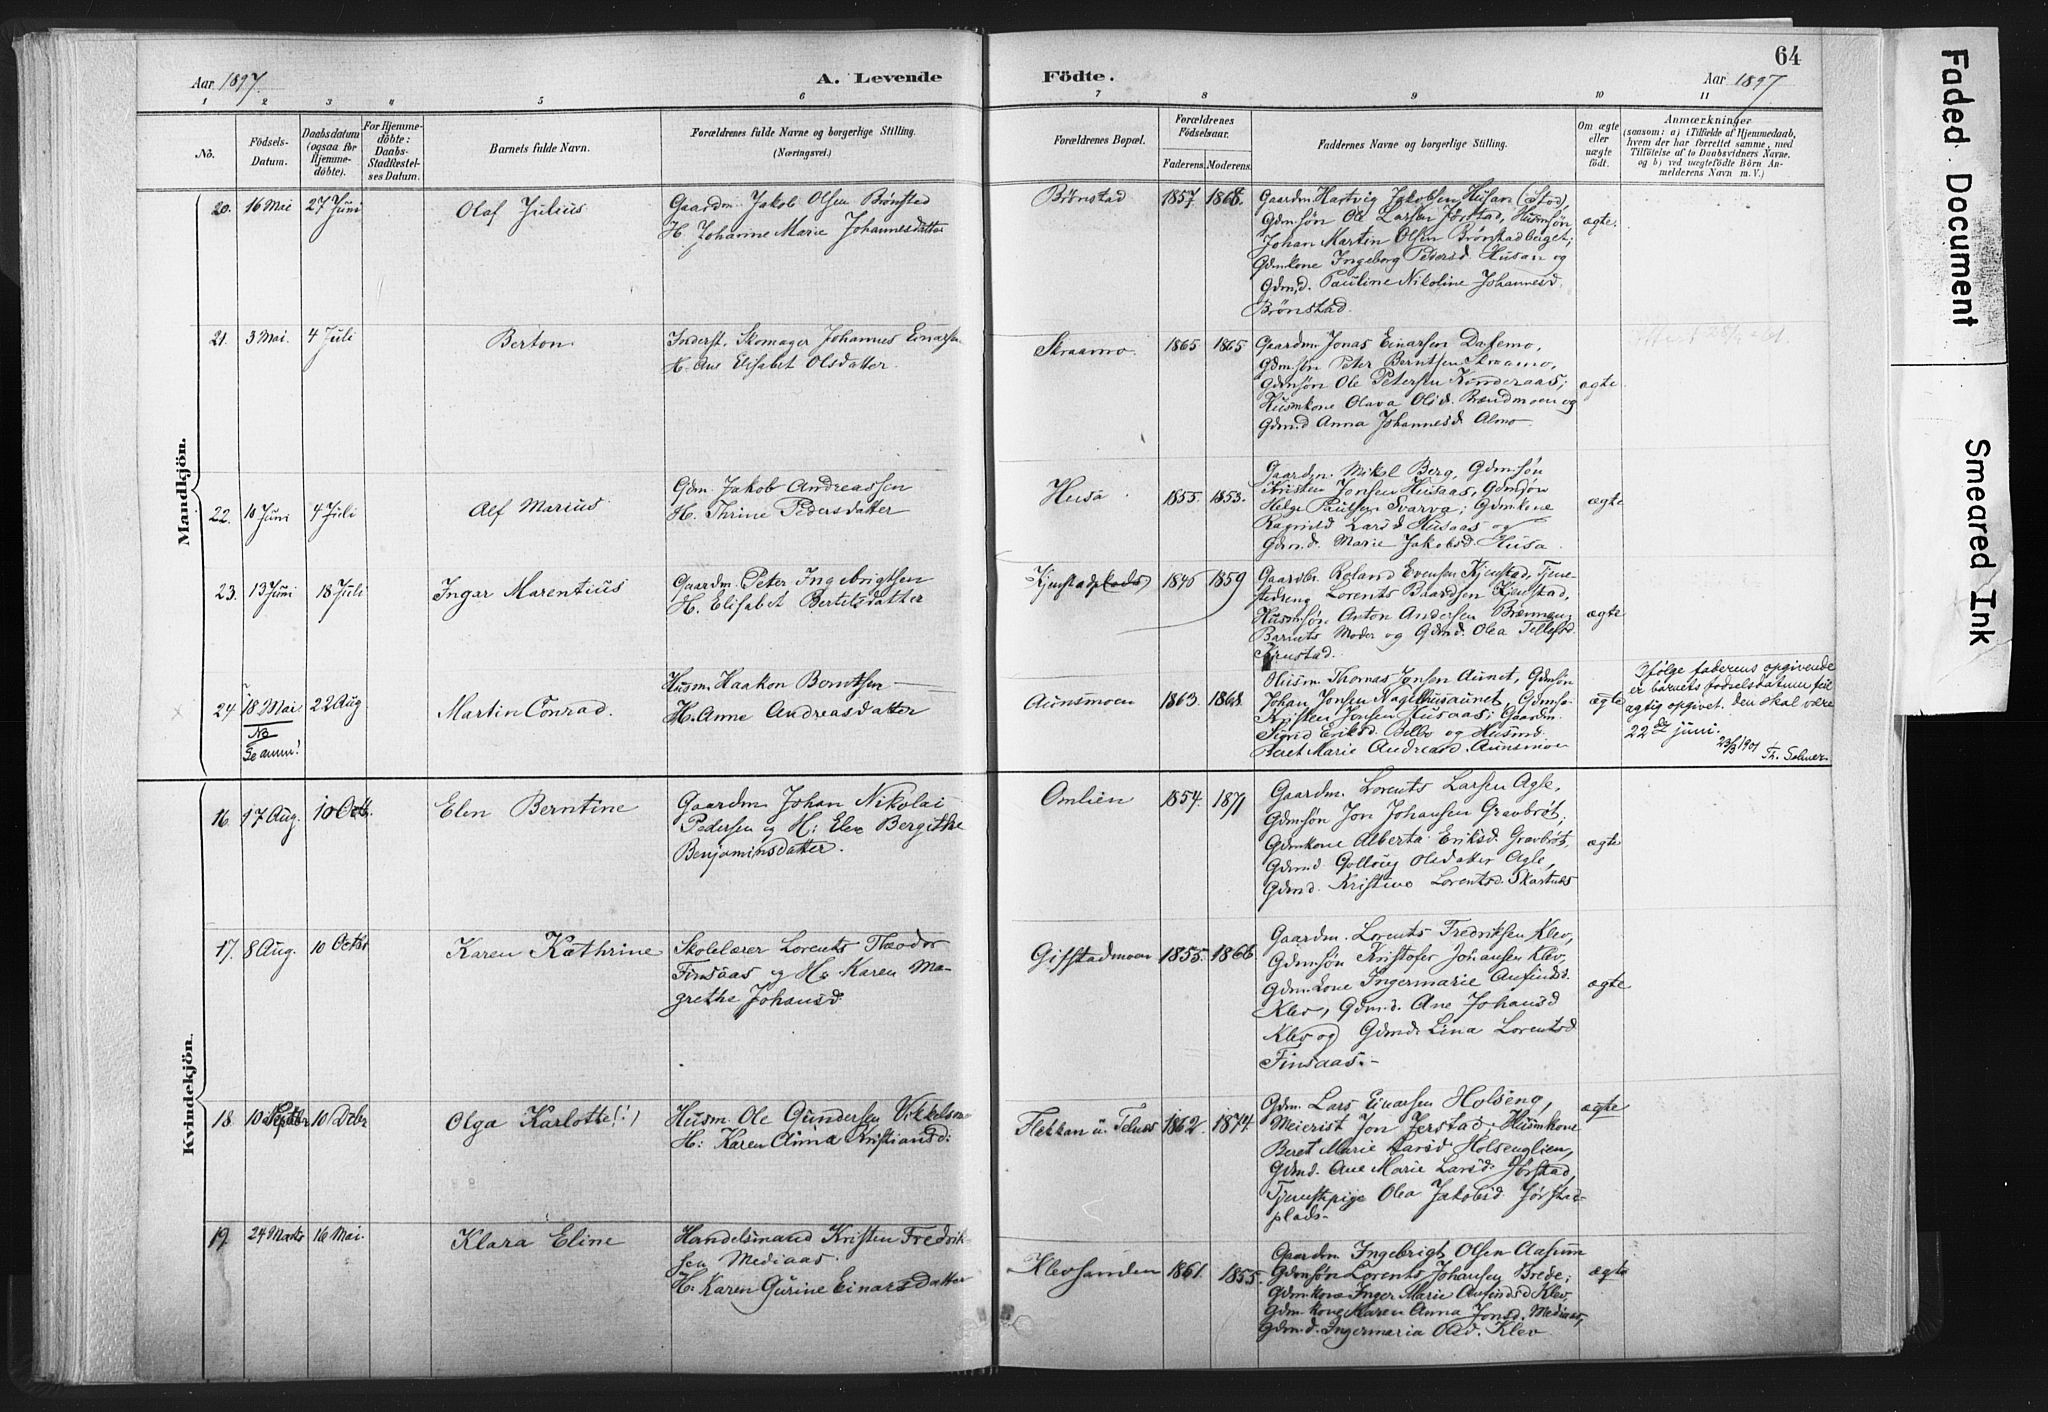 64
Aar 1897. A. Levende Födte. Aar 1897
1 2 3 4 5 6 7 8 9 10 11
Nô.
Födsels-
Datum.
Daabsdatum
(ogsaa for
Hjemme-
döbte).
For Hjemme-
döbte:
Daabs-
Stadfæstel-
ses Datum.
Barnets fulde Navn.
Forældrenes fulde Navne og borgerlige Stilling.
(Næringsvei.)
Forældrenes Bopæl.
Forældrenes
Födselsaar.
Faderens. Moderens.
Faddernes Navne og borgerlige Stilling.
Om ægte
eller
uægte
födt.
Anmærkninger
(saasom: a) i Tilfælde af Hjemmedaab,
hvem der har forrettet samme, med
Tilföielse af to Daabsvidners Navne,
og b) ved uægtefödte Börn An-
melderens Navn m. V.)
Mandkjön.
20. 16 Mai 27 Juni Olaf Julius
Gaardm. Jakob Olsen Brønstad
H. Johanne Marie Johannesdatter
Brønstad 1857 1868.
Gaardm. Hartvig Jakobsen Husan (Stod),
Gdmsøn Ole Larsen Jørstad, Husmsøn
Johan Martin Olsen Brønstadberget;
Gdmkone Ingeborg Pedersd. Husan og
Gdm.d. Pauline Nikoline Johannesd.
Brønstad.
ægte.
21. 3 Mai. 4 Juli Berton.
Inderst, Skomager Johannes Einarsen
H. Ane Elisabet Olsdatter.
Skraamo. 1865 1865
Gaardm. Jonas Einarsen Dalemo,
Gdmsøn Peter Berntsen Skraamo,
Gdmsøn Ole Petersen Kinderaas;
Husmkone Olava Olsd. Brændmoen og
Gdmd Anna Johannesd. Almo.
ægte
22. 10 Juni 4 Juli Alf Marius
Gdm. Jakob Andreassen
H. Thrine Pedersdatter
Husa 1855. 1853.
Gaardm. Mikal Berg, Gdmsøn
Kristen Jonsen Husaas, Gdmsøn
Helge Paulsen Svarva; Gdmkone
Ragnild Larsd Husaas og
Gdm.d. Marie Jakobsd. Husa.
ægte
23. 13 Juni 18 Juli Ingar Marentius
Gaardm. Peter Ingebrigtsen
H. Elisabet Bertelsdatter
Kjenstadplads 1840 1859
Gaardbr. Roland Evensen Kjenstad, Tjene-
stedreng Lorents Baardsen Kjenstad,
Husmsøn Anton Andersen Brænmoen,
Barnets Moder og Gdmd. Olea Tellefsd.
Kjenstad.
ægte
24. 18 Mai 22 Aug Martin Conrad.
NB
Se anm!
Husm. Haakon Berntsen
H. Anne Andreasdatter
Aunsmoen 1863. 1868.
Husm. Thomas Jonsen Aunet, Gdmsøn
Johan Jonsen Naglhusaunet, Gdmsø-
Kristen Jonsen Husaas; Gaardm.
Sigrid Eriksd. Belbo og Husmd.
Beret Marie Andreasd. Aunsmoen
ægte
Ifølge faderens opgivende
er barnets fødselsdatum feil
agtig opgivet. Den skal være
22de juni.
23/3 1901
Th. Solmer.
Kvindekjön.
16. 17 Aug. 10 Octb. Elen Berntine
Gaardm. Johan Nikolai
Pedersen og H: Elen Bergitthe
Benjaminsdatter.
Omlien 1854. 1871
Gaardm. Lorents Larsen Agle,
Gdmsøn Jon Johansen Gravbrøt,
Gdmkone Alberta Eriksd. Gravbrøt,
Gdmd Gollaug Olsdatter Agle,
Gdmd. Kristine Lorentsd. Skartnes
ægte
17. 8 Aug. 10 Octbr Karen Kathrine
Skolelærer Lorents Theodor
Finsaas og H: Karen Ma-
grethe Johansd
Gifstadmoen 1855. 1866.
Gaardm. Lorents Fredriksen Klev,
Gdmsøn Kristofer Johansen Klev,
Gdm.kone Ingermarie Anfindsd.
Klev, Gdm.d. Ane Johansd
Klev og Gdmd. Lina Lorentsd
Finsaas.-
ægte
18. 10 Septbr 10 Octbr Olga Karlotte (!)
Husm. Ole Gundersen Vikkelsmo-
H: Karen Anna Kristiansd:
Flekkan u. Telnes 1862. 1874.
Gdm. Lars Einarsen Holseng,
Meierist Jon Jerstad. Husmkone
Beret Marie Larsd Holsenglien,
Gdmd. Ane Marie Larsd. Jørstad,
Tjenestpige Olea Jakobsd Jørstad-
plads-
ægte
19. 24 Marts 16 Mai. Klara Eline
Handelsmand Kristen Fredrik-
sen Mediaas.
H. Karen Gurine Einarsdatter
Klevsanden 1861. 1855.
Gaardm. Ingebrigt Olsen Aasum
Gdmsøn Lorents Johansen Brede;
Gdmkone Inger Marie Anfindsd Klev,
Gdmkone Karen Anna Jonsd. Mediaas,
Gdmd. Ingermaria Olsd. Klev.
ægte
Faded Document
Smeared Ink